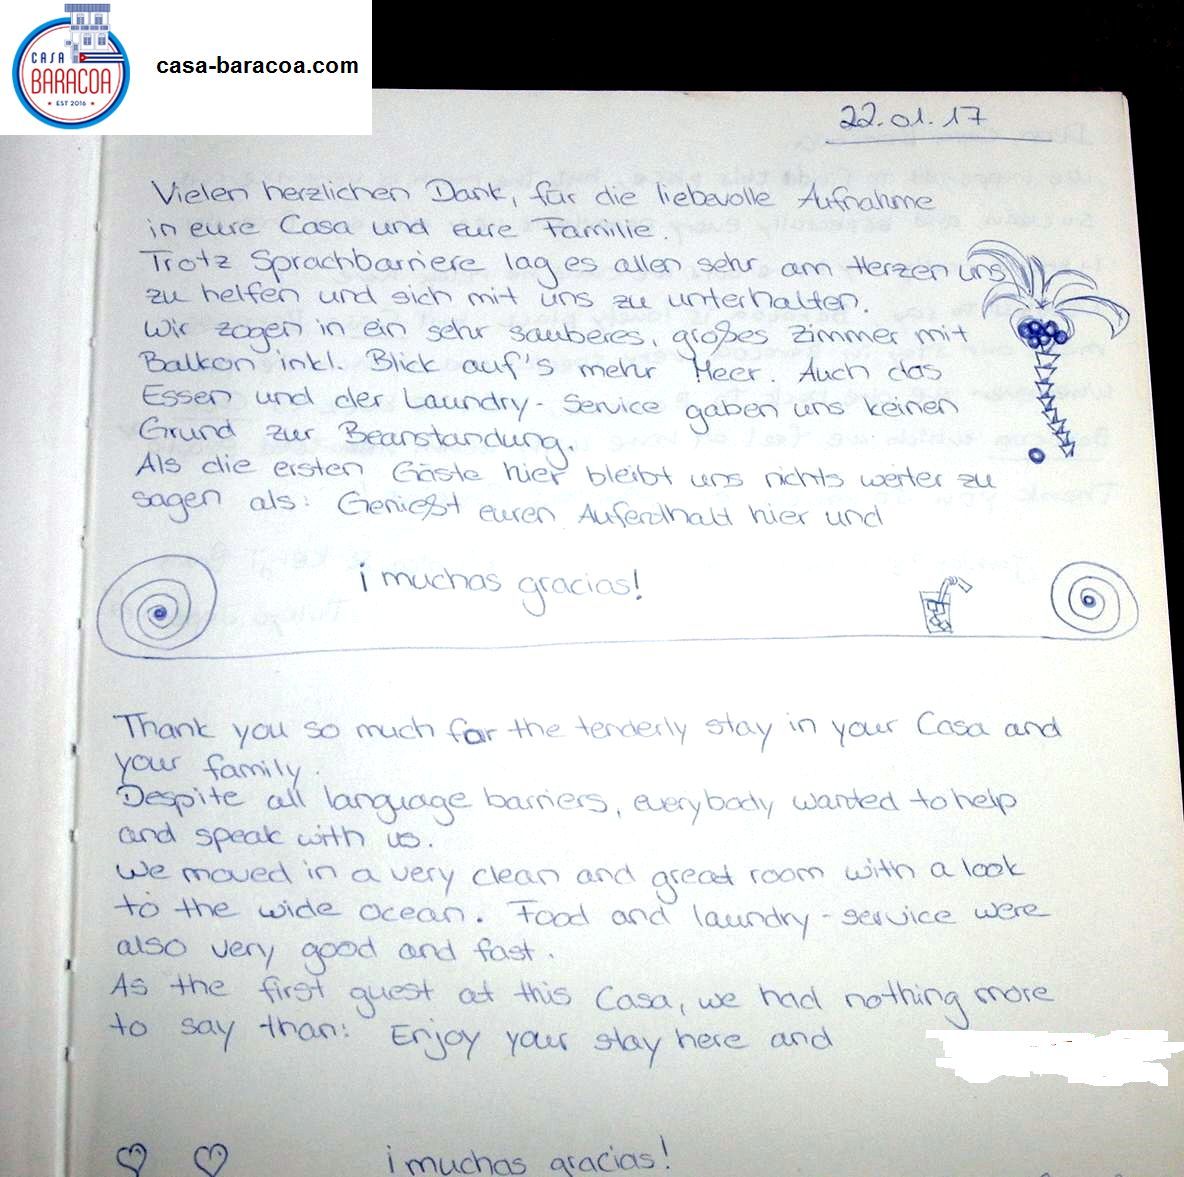 CASA
BARACOA
EST 2016
casa-baracoa.com
22.01.17
Vielen herzlichen Dank, für die liebevolle Aufnahme
in eure Casa und eure Familie.
Trotz Sprachbarriere lag es allen sehr am Herzen uns
zu helfen und sich mit uns zu unterhalten.
Wir zogen in ein sehr sauberes, großes Zimmer mit
Balkon inkl. Blick auf's mehr Meer. Auch das
Essen und der Laundry-Service gaben uns keinen
Grund zur Beanstandung.
Als die ersten Gäste hier bleibt uns nichts weiter zu
sagen als: Genießt euren Aufenthalt hier und
¡muchas gracias!
Thank you so much for the tenderly stay in your Casa and
your family.
Despite all language barriers, everybody wanted to help
and speak with us.
We moved in a very clean and great room with a look
to the wide ocean. Food and laundry-service were
also very good and fast.
As the first guest at this Casa, we had nothing more
to say than: Enjoy your stay here and
¡muchas gracias!